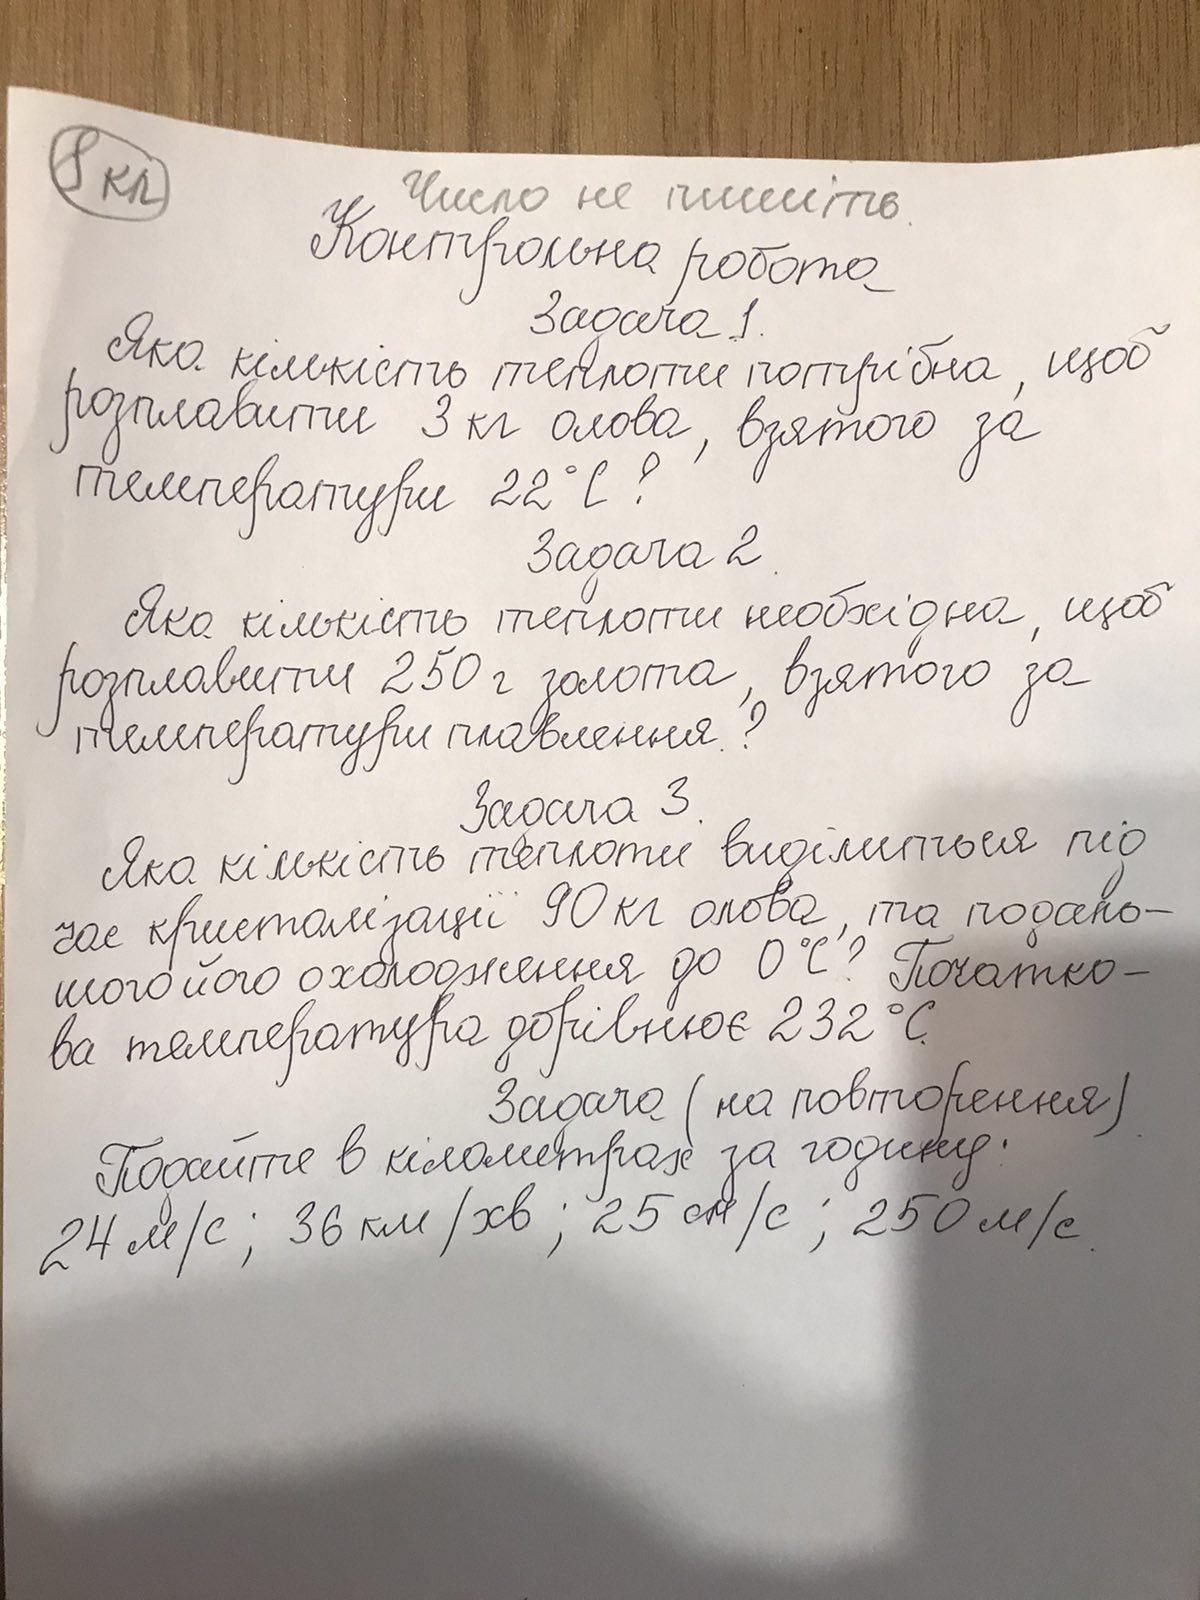 8 кл
Число не пишіть.
Контрольна робота
Задача 1.
Яка кількість теплоти потрібна, щоб
розплавити 3 кг олова, взятого за
температури 22°С?
Задача 2.
Яка кількість теплоти необхідна, щоб
розплавити 250 г золота, взятого за
температури плавлення?
Задача 3.
Яка кількість теплоти виділиться під
час кристалізації 90 кг олова, та подаль-
шого його охолодження до 0°С? Початко-
ва температура дорівнює 232°С.
Задача (на повторення).
Подайте в кілометрах за годину:
24 м/с; 36 км/хв; 25 см/с; 250 м/с.